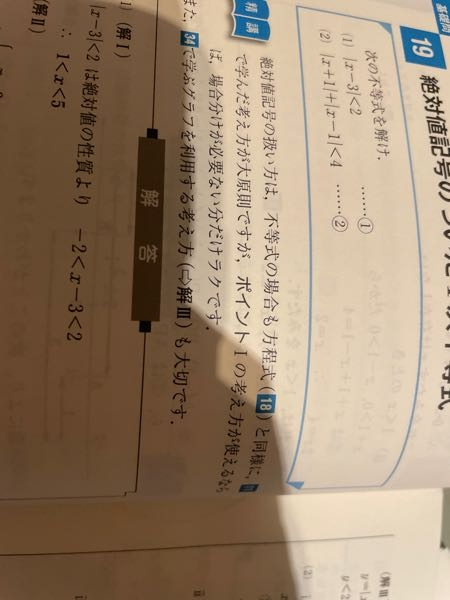 基礎問
19 絶対値記号のついた1次不等式
次の不等式を解け.
(1) |x-3|<2 ……①
(2) |x+1|+|x-1|<4 ……②
精講
絶対値記号の扱い方は,不等式の場合も方程式(18)と同様に,
で学んだ考え方が大原則ですが,ポイントIの考え方が使えるなら
ば,場合分けが必要ない分だけラクです.
また,34で学ぶグラフを利用する考え方(⇨解Ⅲ)も大切です.
解答
1) (解Ⅰ)
|x-3|<2 は絶対値の性質より -2<x-3<2
∴ 1<x<5
(解Ⅱ)
(解Ⅲ
y=|x
y<2
(2)
ii
i